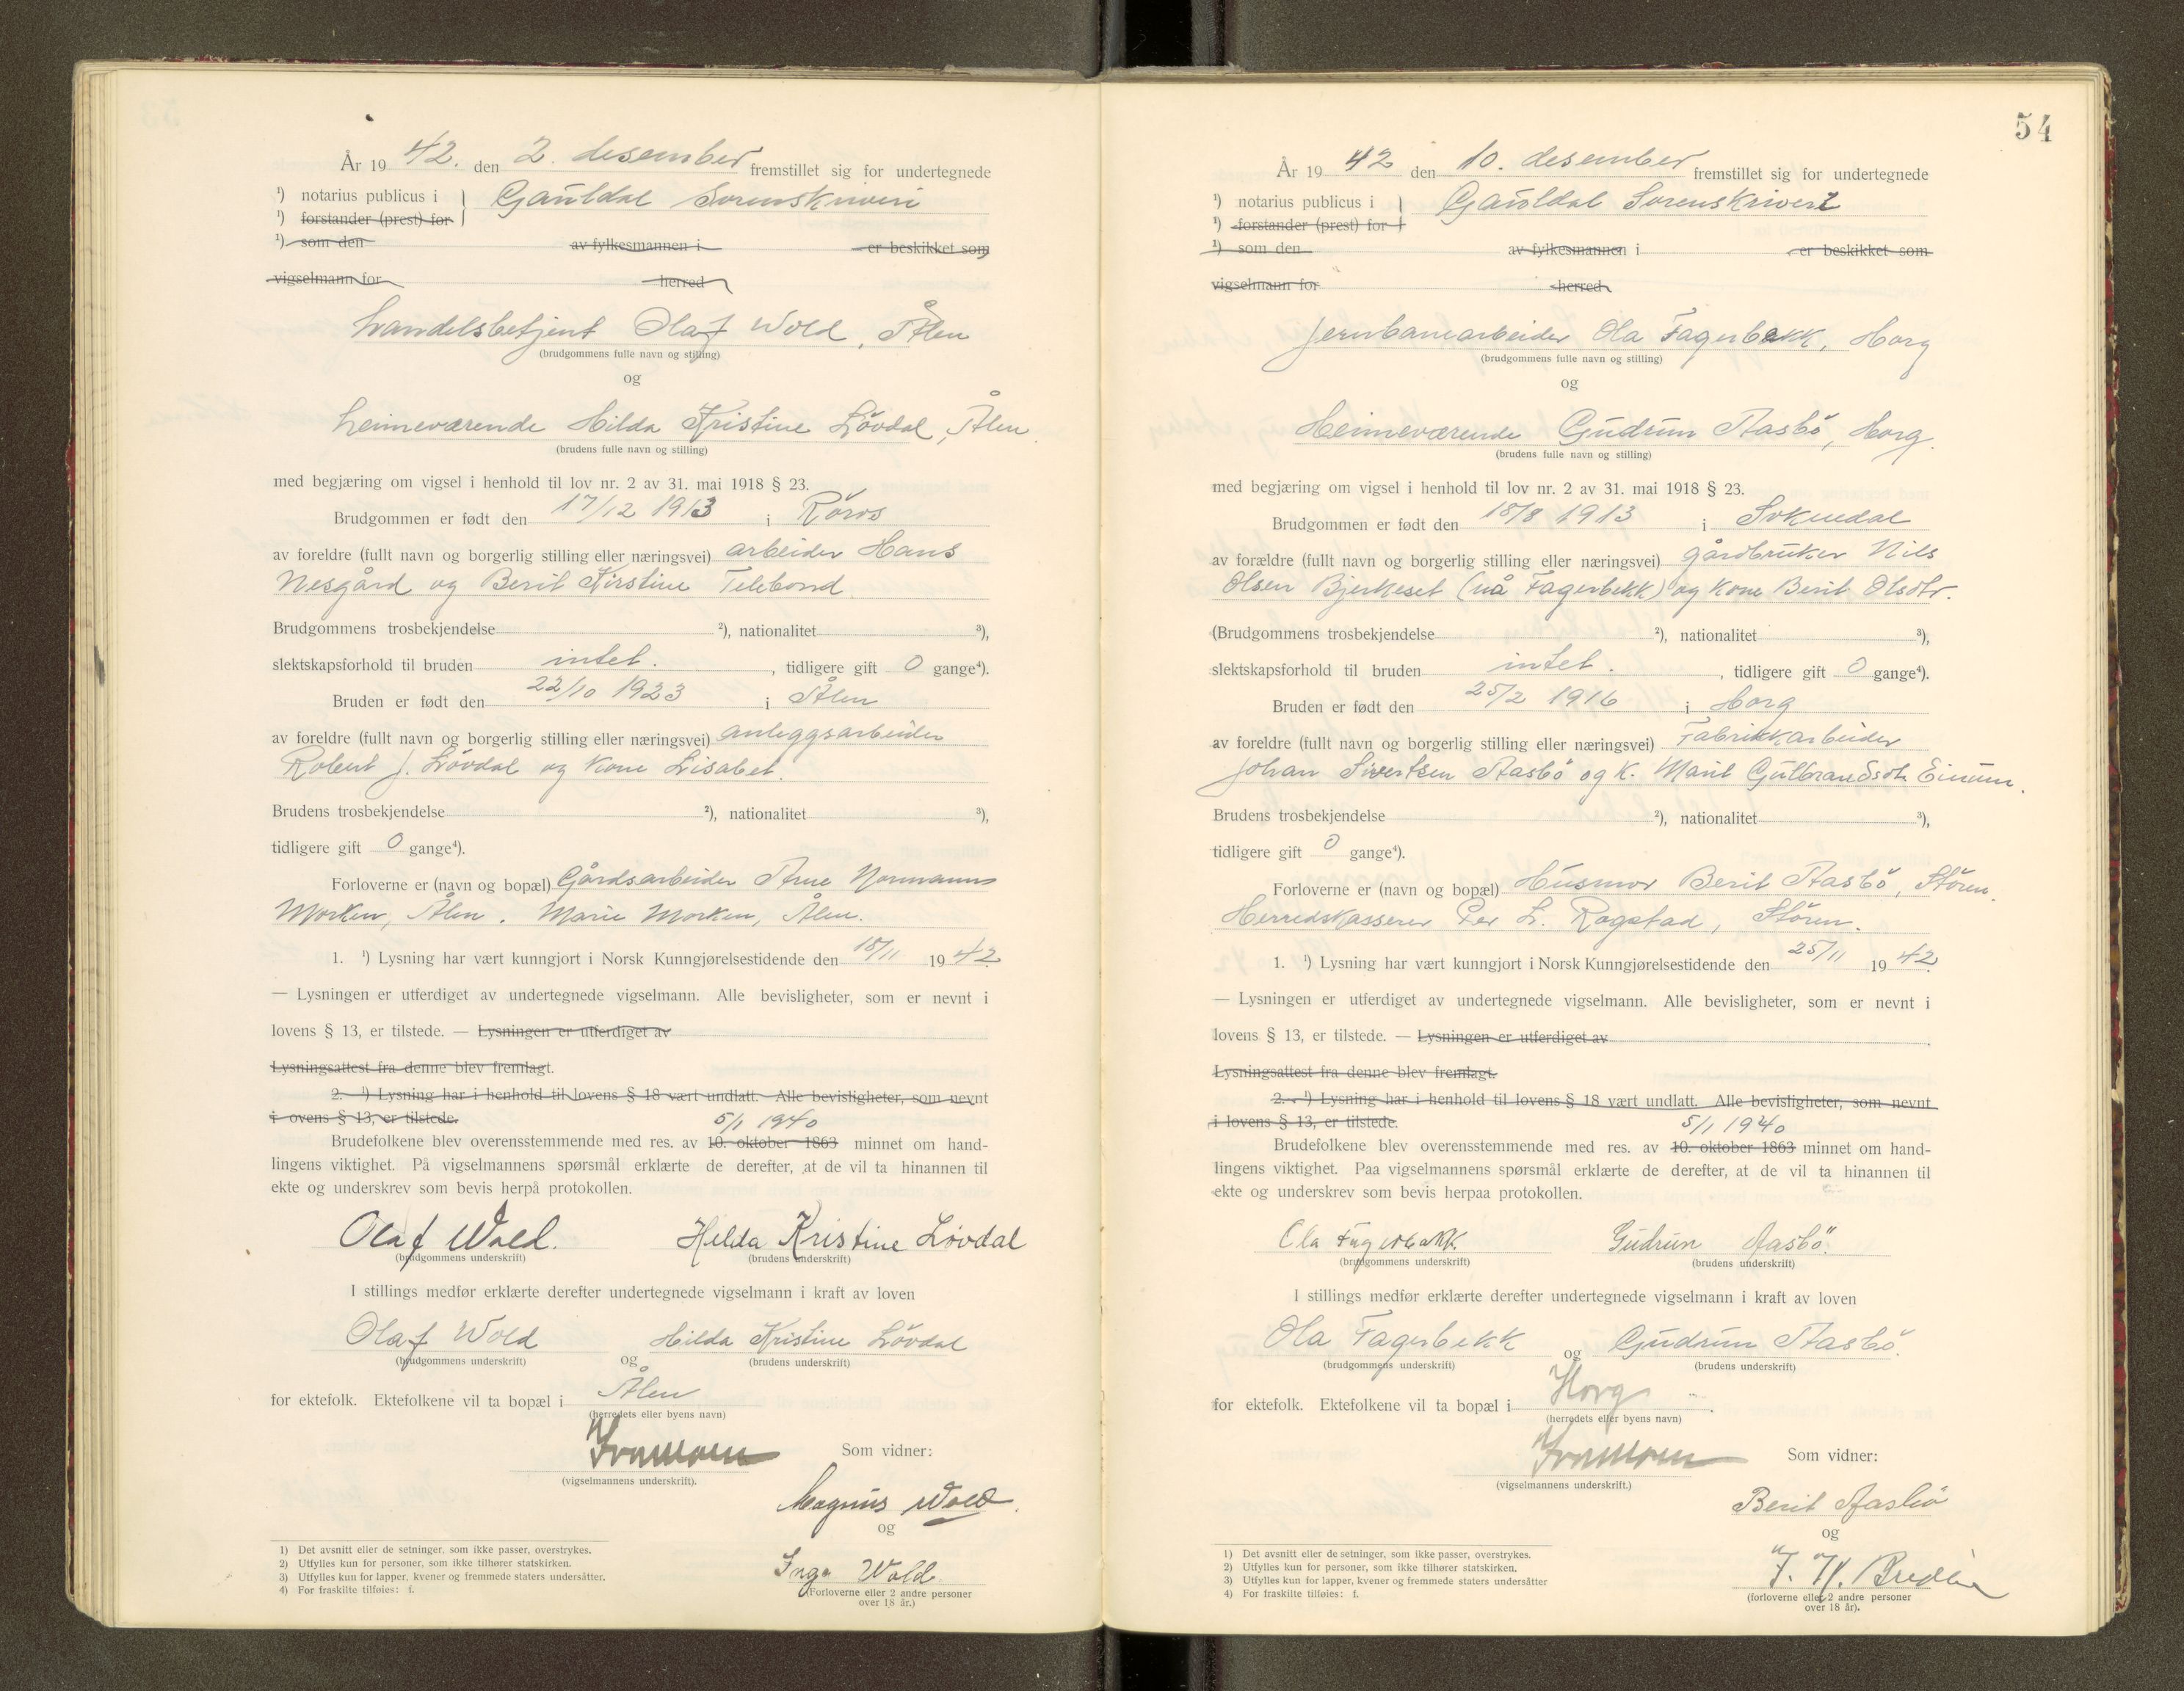 År 19 42. den 2. desember fremstillet sig for undertegnede
¹) notarius publicus i } Gauldal Sorenskriveri
¹) forstander (prest) for
¹) som den av fylkesmannen i er beskikket som
vigselmann for herred
handelsbetjent Olaf Wold, Ålen
(brudgommens fulle navn og stilling)
og
heimeværende Hilda Kristine Lövdal, Ålen.
(brudens fulle navn og stilling)
med begjæring om vigsel i henhold til lov nr. 2 av 31. mai 1918 § 23.
Brudgommen er født den 17/12 1913 i Röros
av foreldre (fullt navn og borgerlig stilling eller næringsvei) arbeider Hans
Nesgård og Berit Kirstine Telebond.
Brudgommens trosbekjendelse ²), nationalitet ³),
slektskapsforhold til bruden intet. , tidligere gift 0 gange⁴).
Bruden er født den 22/10 1923 i Ålen
av foreldre (fullt navn og borgerlig stilling eller næringsvei) anleggsarbeider
Robert J. Lövdal og kone Lisabet.
Brudens trosbekjendelse ²), nationalitet ³),
tidligere gift 0 gange⁴).
Forloverne er (navn og bopæl) Gårdsarbeider Arne Normann
Morken, Ålen. Marie Morken, Ålen.
1. ¹) Lysning har vært kunngjort i Norsk Kunngjørelsestidende den 18/11 19 42.
— Lysningen er utferdiget av undertegnede vigselmann. Alle bevisligheter, som er nevnt i
lovens § 13, er tilstede. — Lysningen er utferdiget av
Lysningsattest fra denne blev fremlagt.
2. ¹) Lysning har i henhold til lovens § 18 vært undlatt. Alle bevisligheter, som nevnt
i ovens § 13, er tilstede. 5/1 1940
Brudefolkene blev overensstemmende med res. av 10. oktober 1863 minnet om hand-
lingens viktighet. På vigselmannens spørsmål erklærte de derefter, at de vil ta hinannen til
ekte og underskrev som bevis herpå protokollen.
Olaf Wold. Hilda Kristine Lövdal
(brudgommens underskrift) (brudens underskrift)
I stillings medfør erklærte derefter undertegnede vigselmann i kraft av loven
Olaf Wold og Hilda Kristine Lövdal
(brudgommens underskrift) (brudens underskrift)
for ektefolk. Ektefolkene vil ta bopæl i Ålen
(herredets eller byens navn)
Som vidner:
(vigselmannens underskrift).
Magnus Wold.
og
Inga Wold
(Forloverne eller 2 andre personer
over 18 år.)
1) Det avsnitt eller de setninger, som ikke passer, overstrykes.
2) Utfylles kun for personer, som ikke tilhører statskirken.
3) Utfylles kun for lapper, kvener og fremmede staters undersåtter.
4) For fraskilte tilføies: f.
54
År 19 42 den 10. desember fremstillet sig for undertegnede
¹) notarius publicus i } Gauldal Sorenskriveri
¹) forstander (prest) for
¹) som den av fylkesmannen i er beskikket som
vigselmann for herred
Jernbanearbeider Ola Fagerbekk, Horg
(brudgommens fulle navn og stilling)
og
Heimeværende Gudrun Aasbö, Horg.
(brudens fulle navn og stilling)
med begjæring om vigsel i henhold til lov nr. 2 av 31. mai 1918 § 23.
Brudgommen er født den 18/8 1913 i Soknedal
av forældre (fullt navn og borgerlig stilling eller næringsvei) gårdbruker Nils
Olsen Bjerkeset (nå Fagerbekk) og kone Berit Olsdtr.
(Brudgommens trosbekjendelse ²), nationalitet ³),
slektskapsforhold til bruden intet. , tidligere gift 0 gange⁴).
Bruden er født den 25/2 1916 i Horg
av foreldre (fullt navn og borgerlig stilling eller næringsvei) Fabrikkarbeider
Johan Sivertsen Aasbö og k. Marit Gulbrandsdt. Einum.
Brudens trosbekjendelse ²), nationalitet ³),
tidligere gift 0 gange⁴).
Forloverne er (navn og bopæl) Husmor Berit Aasbö, Stören.
Herredskasserer Per L. Rogstad, Stören.
1. ¹) Lysning har vært kunngjort i Norsk Kunngjørelsestidende den 25/11 19 42.
— Lysningen er utferdiget av undertegnede vigselmann. Alle bevisligheter, som er nevnt i
lovens § 13, er tilstede. — Lysningen er utferdiget av .
Lysningsattest fra denne blev fremlagt.
2. ¹) Lysning har i henhold til lovens § 18 vært undlatt. Alle bevisligheter, som nevnt
i lovens § 13, er tilstede. 5/1 1940
Brudefolkene blev overensstemmende med res. av 10. oktober 1863 minnet om hand-
lingens viktighet. Paa vigselmannens spørsmål erklærte de derefter, at de vil ta hinannen til
ekte og underskrev som bevis herpaa protokollen.
Ola Fagerbakk. Gudrun Aasbö.
(brudgommens underskrift) (brudens underskrift)
I stillings medfør erklærte derefter undertegnede vigselmann i kraft av loven
Ola Fagerbekk og Gudrun Aasbö.
(brudgommens underskrift) (brudens underskrift)
for ektefolk. Ektefolkene vil ta bopæl i Horg .
(herredets eller byens navn)
Som vidner:
(vigselmannens underskrift.)
Berit Aasbö
og
(forloverne eller 2 andre personer
over 18 år).
1) Det avsnitt eller de setninger, som ikke passer, overstrykes.
2) Utfylles kun for personer, som ikke tilhører statskirken.
3) Utfylles kun for lapper, kvener og fremmede staters undersåtter
4) For fraskilte tilføies: f.